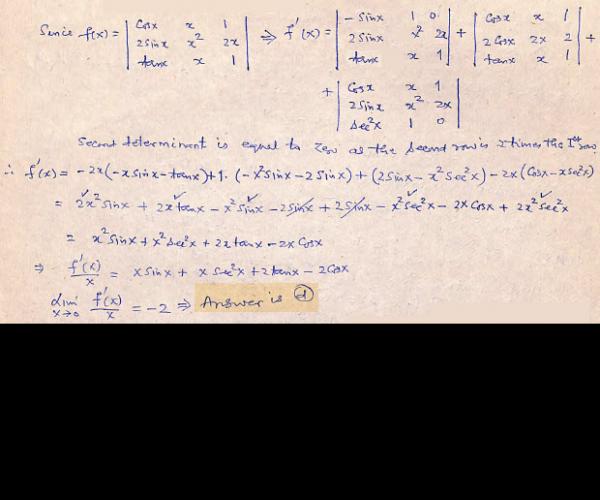 Since f(x) = | Cosx x 1 | ⇒ f'(x) = | -Sinx 1 0 | + | Cosx x 1 | +
| 2Sinx x² 2x | | 2Sinx x² 2x | | 2Cosx 2x 2 |
| tanx x 1 | | tanx x 1 | | tanx x 1 |
+ | Cosx x 1 |
| 2Sinx x² 2x |
| Sec²x 1 0 |
Second determinant is equal to zero as the second row is 2 times the Ist row.
∴ f'(x) = -2x(-xSinx-tanx)+1.(-x²Sinx-2Sinx)+(2Sinx-x²Sec²x)-2x(Cosx-xSec²x)
= 2x²Sinx + 2xtanx - x²Sinx - 2Sinx + 2Sinx - x²Sec²x - 2xCosx + 2x²Sec²x
= x²Sinx + x²Sec²x + 2xtanx - 2xCosx
⇒ f'(x)/x = xSinx + xSec²x + 2tanx - 2Cosx
Lim x→0 f'(x)/x = -2 ⇒ Answer is ⓓ